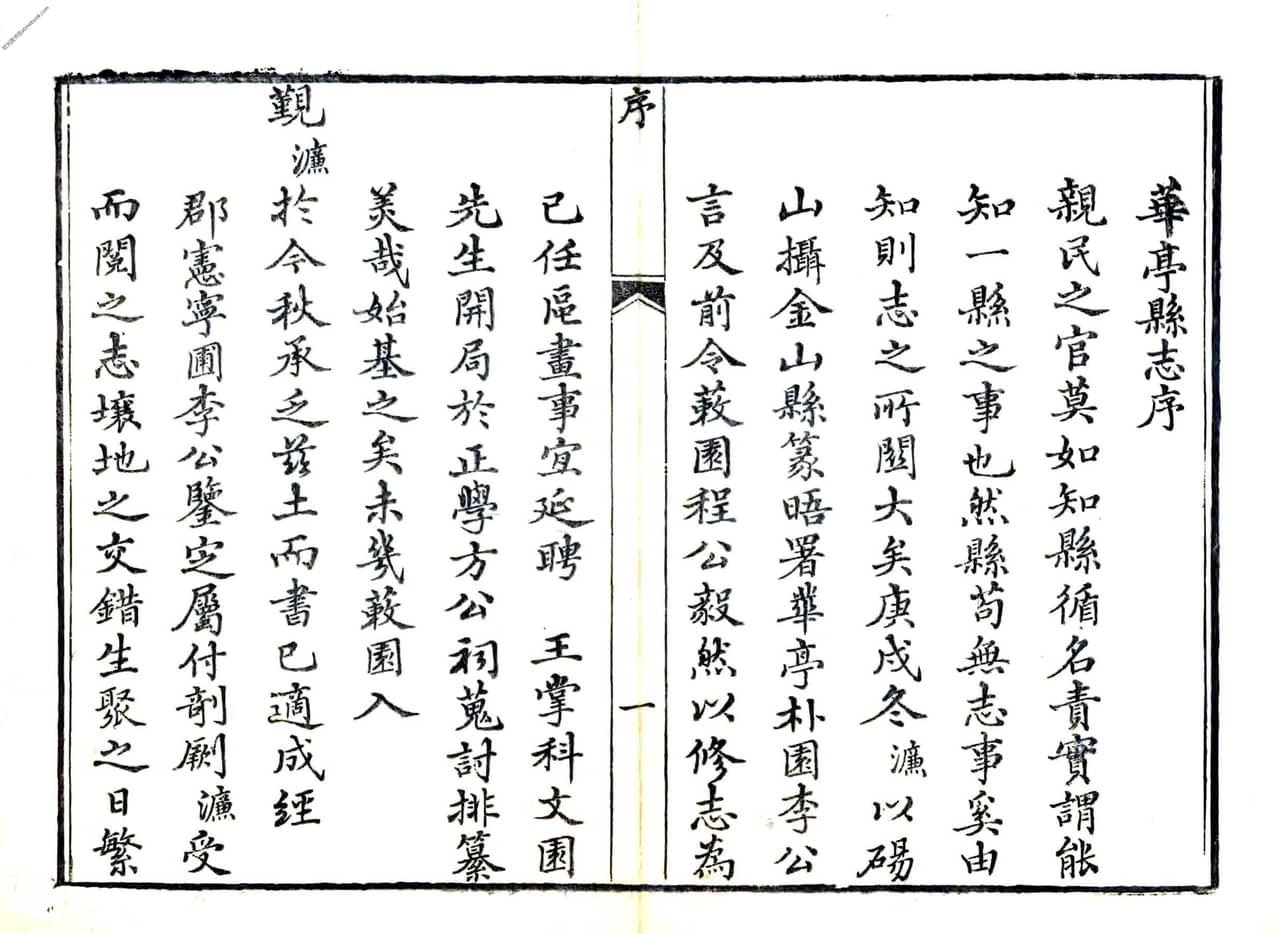 華亭縣志序
親民之官莫如知縣循名責實謂能
知一縣之事也然縣苟無志事奚由
知則志之所關大矣庚戌冬濂以碭
山攝金山縣篆晤署華亭朴園李公
言及前令蔌園程公毅然以修志為
序
一
已任區畫事宜延聘 王掌科文園
先生開局於正學方公祠蒐討排纂
美哉始基之矣未幾蔌園入
覲濂於今秋承乏茲土而書已適成經
郡憲寧圃李公鑒定屬付剞劂濂受
而閱之志壤地之交錯生聚之日繁